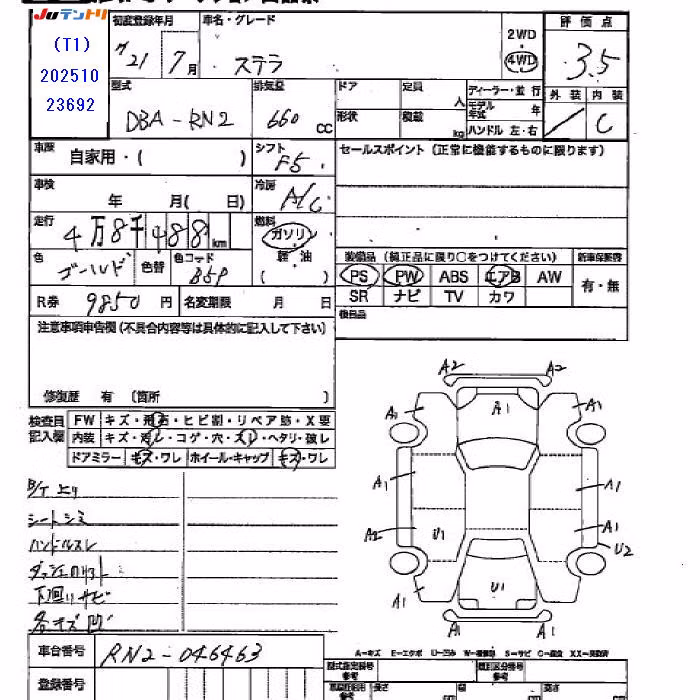 Juテントリ
(T1)
202510
23692
初度登録年月
車名・グレード
評価点
2WD
4WD
3.5
21 7月
ステラ
型式
排気量
ドア
定員
人
ディーラー・並行
外装
内装
DBA-RN2
660 cc
形状
積載
kg
モデル年式
年
ハンドル 左・右
C
車歴
自家用・( )
シフト
F5
セールスポイント(正常に機能するものに限ります)
車検
年 月( 日)
冷房
A/C
走行
4万8千488km
燃料
ガソリン
軽・油
( )
装備品(純正品に限り○をつけてください)
新車保証書
色
ゴールド
色替
色コード
B5P
PS PW ABS エアB AW
有・無
SR ナビ TV カワ
R券
9850円
名変期限
月 日
後日品
注意事項申告欄(不具合内容等は具体的に記入して下さい)
修復歴 有 (箇所 )
検査員記入欄
FW キズ・飛石・ヒビ割・リペア跡・X要
内装 キズ・汚レ・コゲ・穴・スレ・ヘタリ・破レ
ドアミラー キズ・ワレ ホイール・キャップ キズ・ワレ
A2 A2
A1 A1 A1
A1 A1
A2 U1 A1
U2
A1 U1 A1
A1 A1
シートシミ
ハンドルスレ
下回りサビ
各キズ凹
車台番号
RN2-046463
A-キズ E-エクボ U-凹み W-補修跡 S-サビ C-腐食 XX-交換済
登録番号
型式指定番号
参考
類別区分番号
参考
長さ
幅
高さ